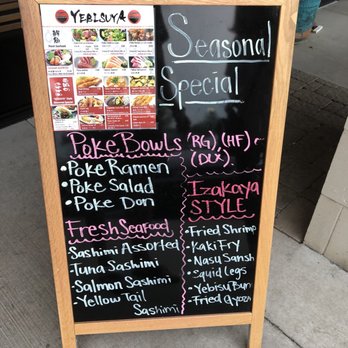 YEBISUYA
Seasonal
Special
Poke Bowls (RG), (HF) -
(DLX).
• Poke Ramen
• Poke Salad
• Poke Don
Fresh Seafood
• Sashimi Assorted
• Tuna Sashimi
• Salmon Sashimi
• Yellow Tail
Sashimi
Izakaya
STYLE
• Fried Shrimp
• Kaki Fry
• Nasu Sansh
• Squid Legs
• Yebisu Bun
• Fried Gyoza